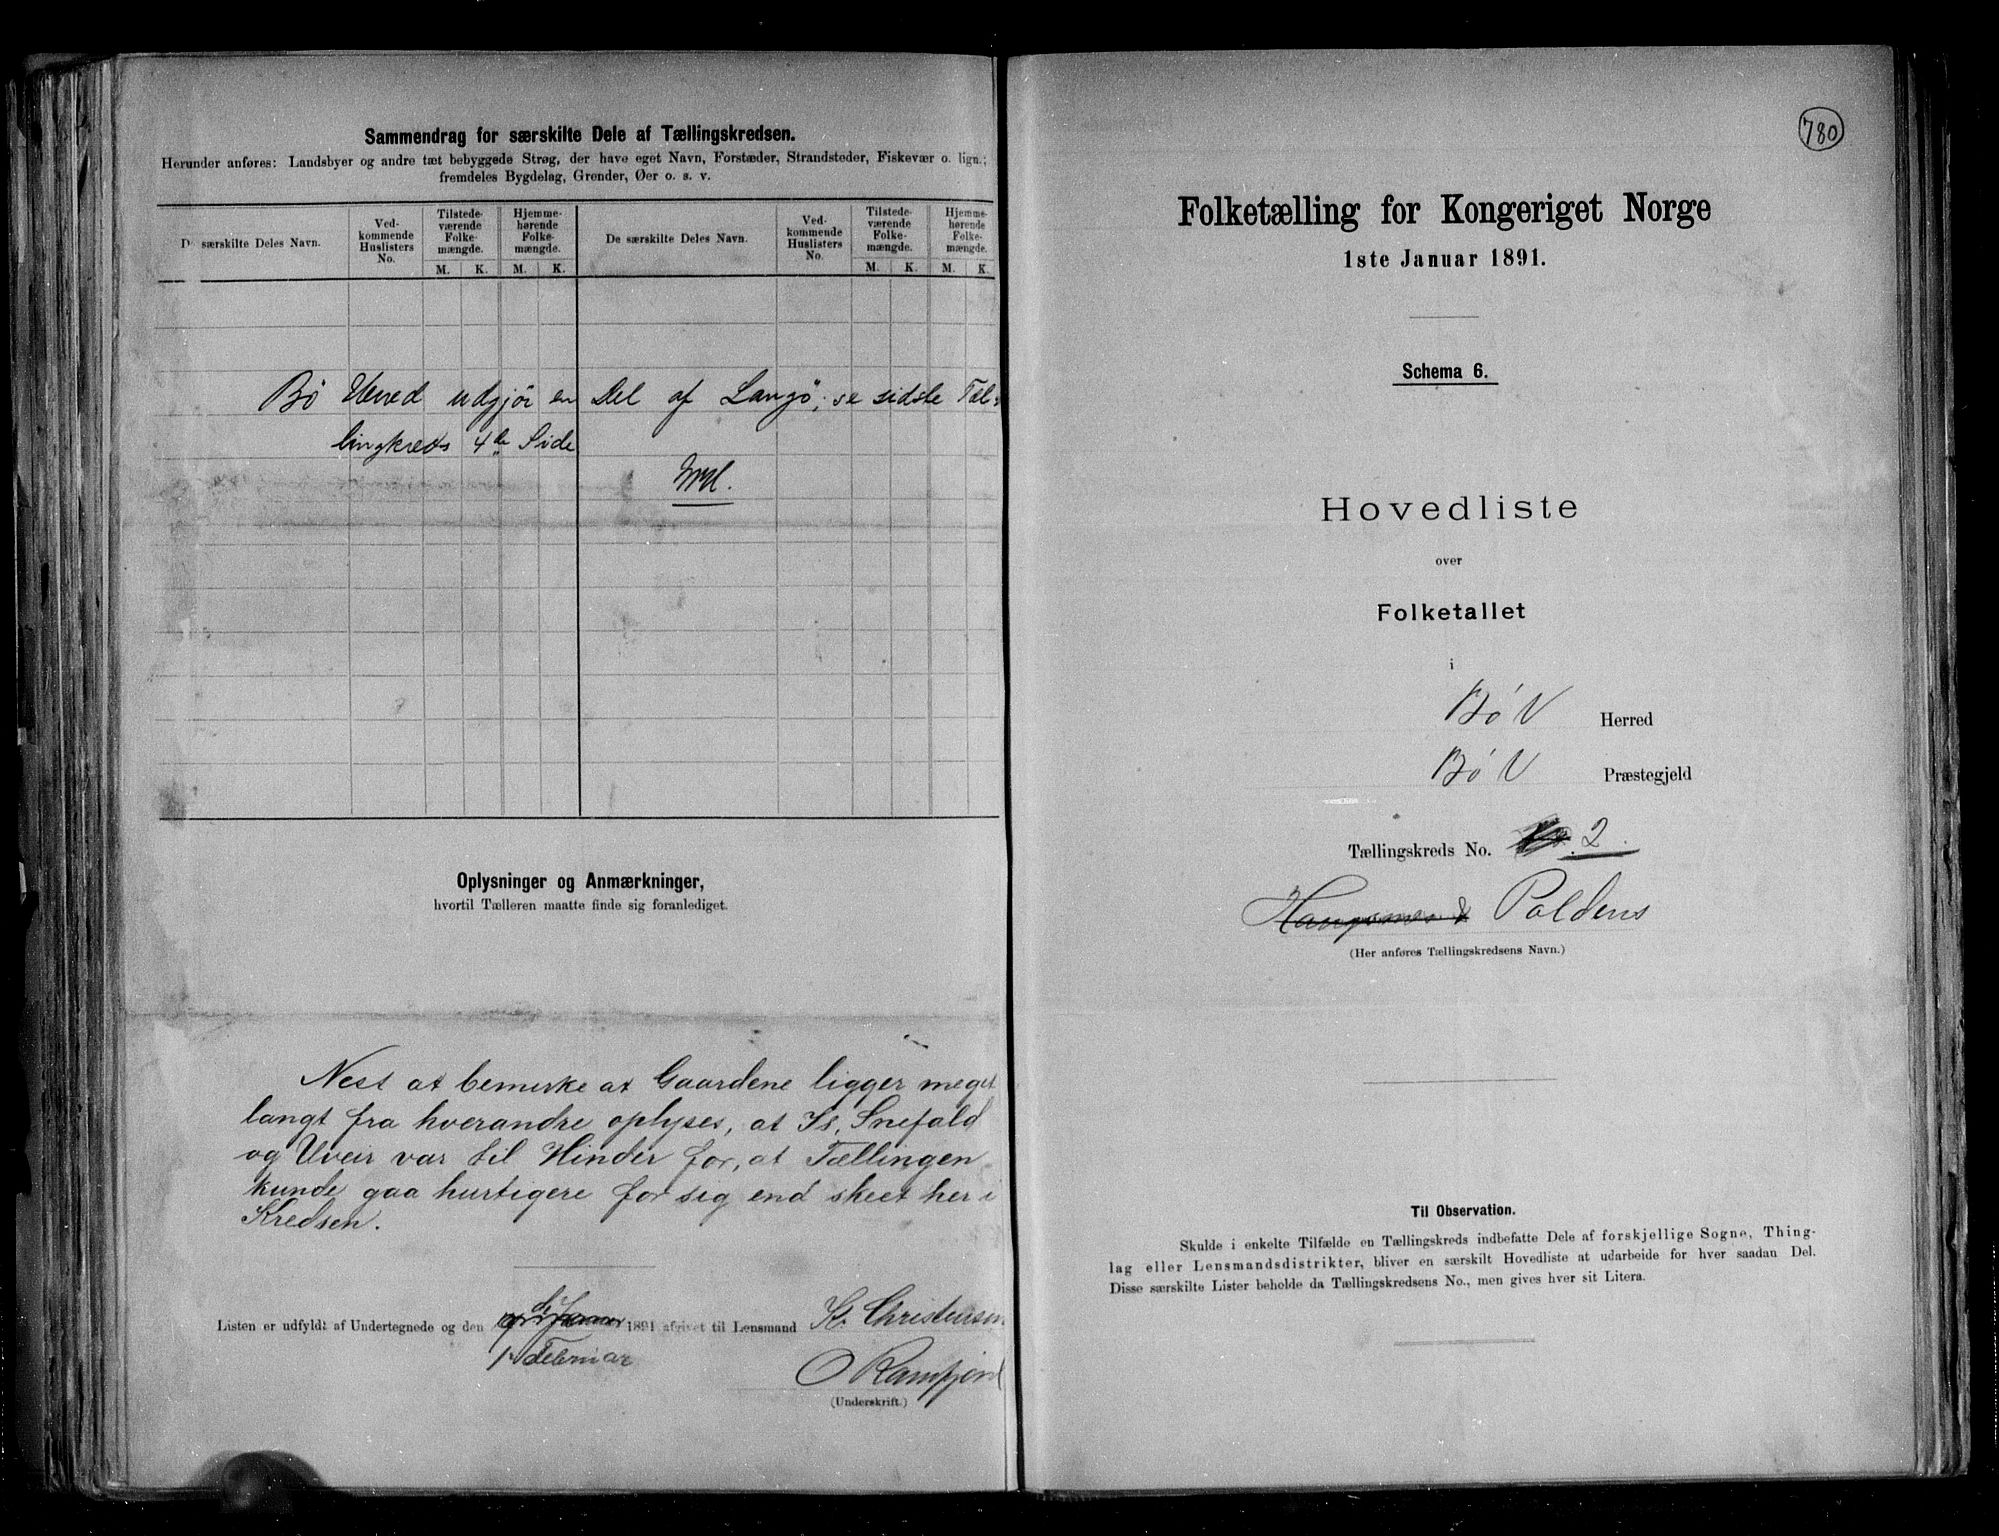 Sammendrag for særskilte Dele af Tællingskredsen.
Herunder anføres: Landsbyer og andre tæt bebyggede Strøg, der have eget Navn, Forstæder, Strandsteder, Fiskevær o. lign.;
fremdeles Bygdelag, Grender, Øer o. s. v.
De særskilte Deles Navn.
Ved-
kommende
Huslisters
No.
Tilstede-
værende
Folke-
mængde.
M. K.
Hjemme-
hørende
Folke-
mængde.
M. K.
De særskilte Deles Navn.
Ved-
kommende
Huslisters
No.
Tilstede-
værende
Folke-
mængde.
M. K.
Hjemme-
hørende
Folke-
mængde.
M. K.
Bø Herred udgjör en Del af Langö; se sidste Tæl-
lingkreds 4de Side
Oplysninger og Anmærkninger,
hvortil Tælleren maatte finde sig foranlediget.
Nest at bemerke at Gaardene ligger meget
langt fra hverandre oplyses, at Is, Snefald
og Uveir var til Hinder for, at Tællingen
kunde gaa hurtigere for sig end skeet her i
Kredsen.
Listen er udfyldt af Undertegnede og den 1891 afgivet til Lensmand K. Christensen
1. Februar
O Ramfjord
(Underskrift.)
780
Folketælling for Kongeriget Norge
1ste Januar 1891.
Schema 6.
Hovedliste
over
Folketallet
i
Bø V Herred
Bø V Præstegjeld
Tællingskreds No. 2.
Poldens
(Her anføres Tællingskredsens Navn.)
Til Observation.
Skulde i enkelte Tilfælde en Tællingskreds indbefatte Dele af forskjellige Sogne, Thing-
lag eller Lensmandsdistrikter, bliver en særskilt Hovedliste at udarbeide for hver saadan Del.
Disse særskilte Lister beholde da Tællingskredsens No., men gives hver sit Litera.